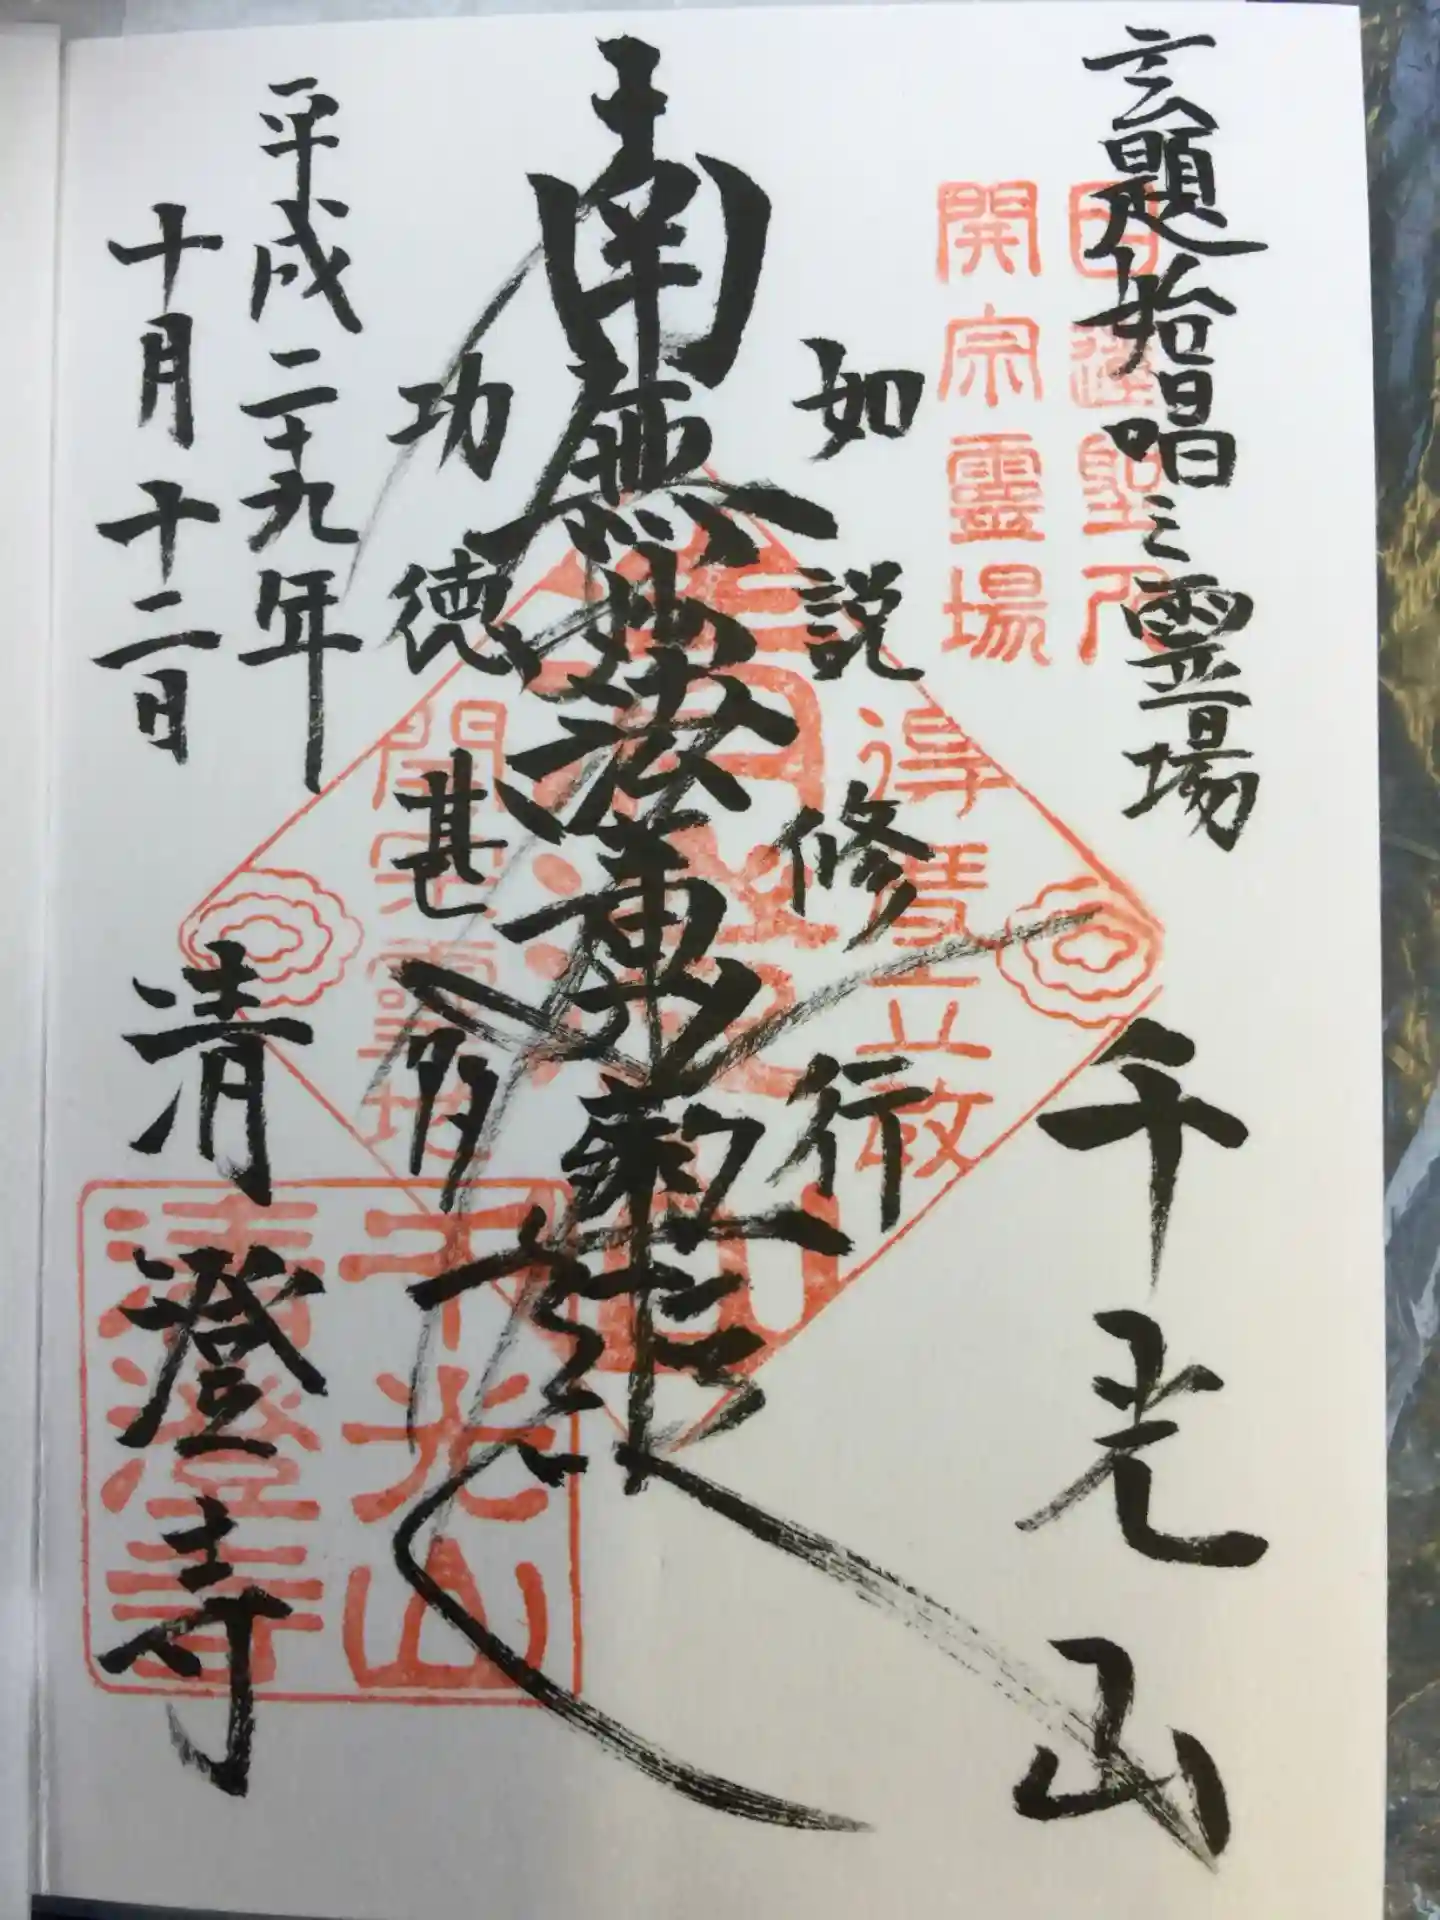 玄題始唱之霊場
千光山
日蓮聖人
開宗霊場
如説修行
南無妙法蓮華経
功徳甚多
得度立教
開宗霊場
平成二十九年
十月十二日
清澄寺
千光山
清澄寺